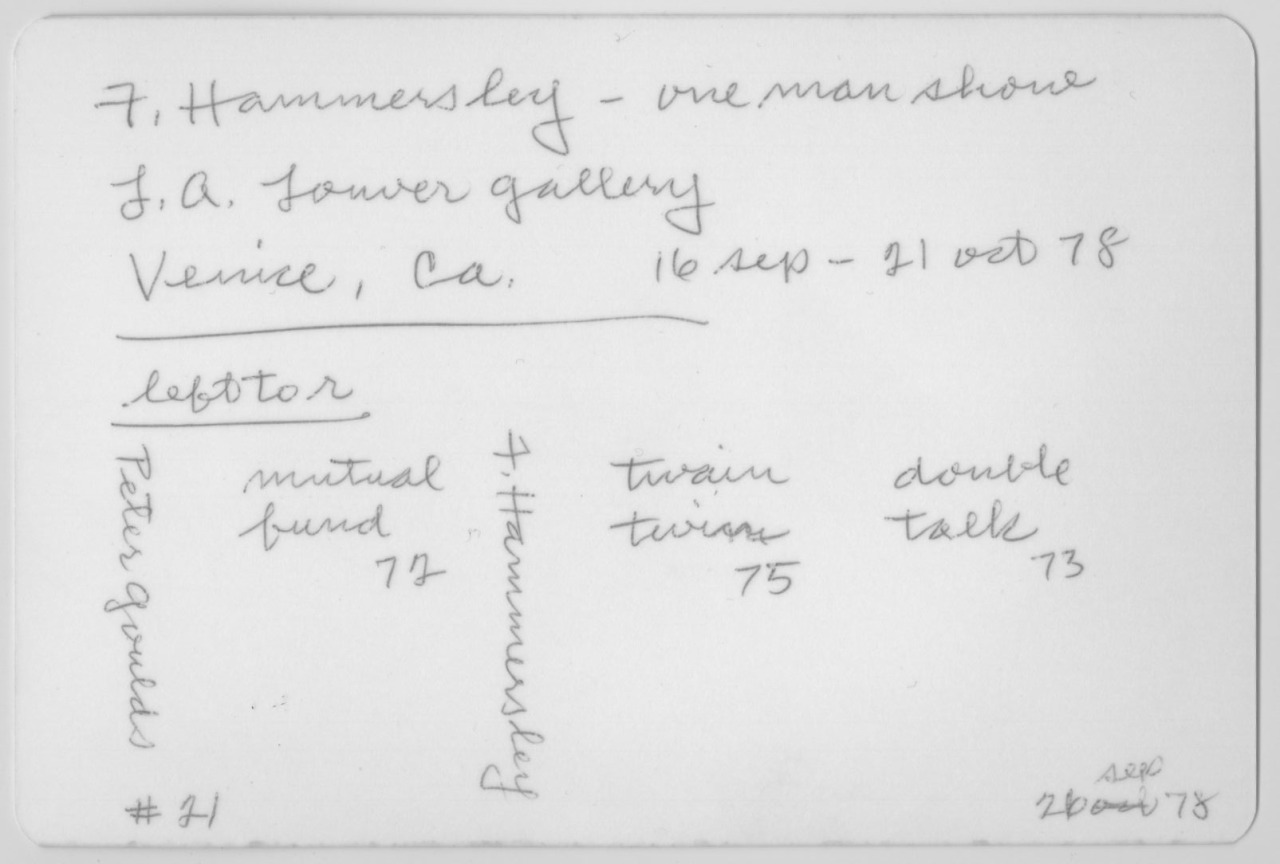 F. Hammersley - one man show
L.A. Louver gallery
Venice, Ca. 16 sep - 21 oct 78
left to r
Peter goulds
mutual
fund
72
F. Hammersley
twain
twin
75
double
talk
73
# 21
sep
26 oct 78